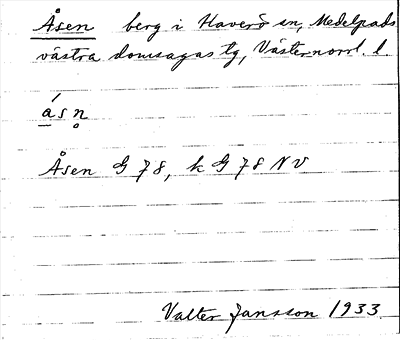 Åsen berg i Haverö sn, Medelpads
västra domsagas tg, Västernorrl. l.
ásn̥
Åsen G 78, k G 78 NV
Valter Jansson 1933.